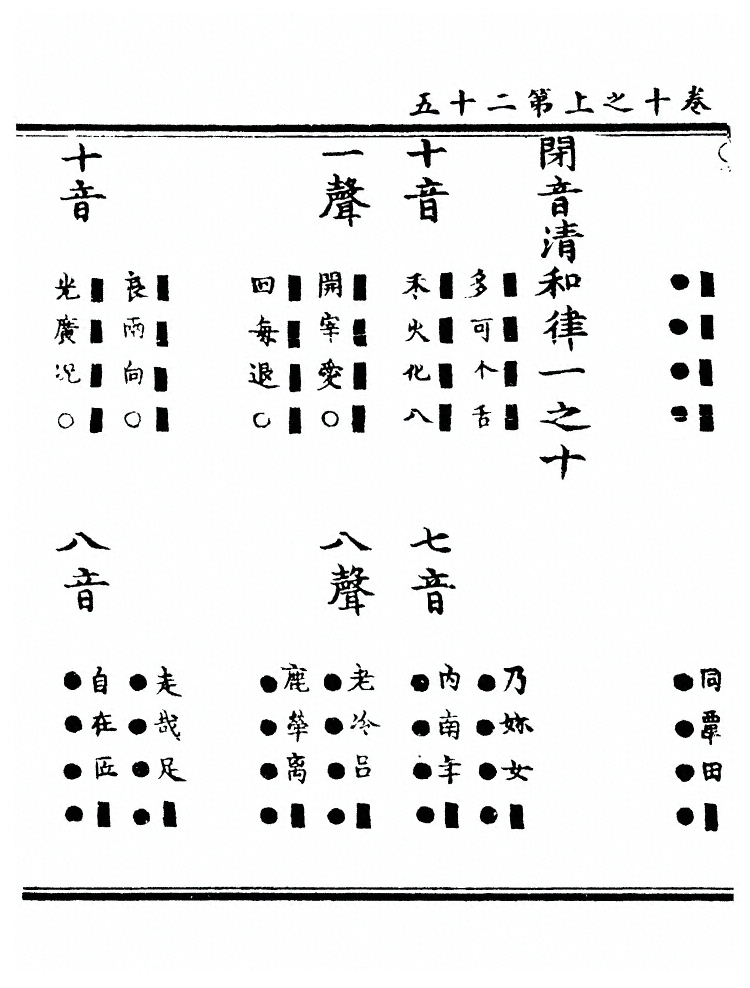 卷十之上第二十五
同覃田
閉音清和律一之十
多可个舌
乃妳女
十音
禾火化八
七音
内南年
一聲
開宰愛○
回每退○
八聲
老冷呂
鹿犖离
十音
良兩向○
光廣况○
八音
走哉足
自在匠